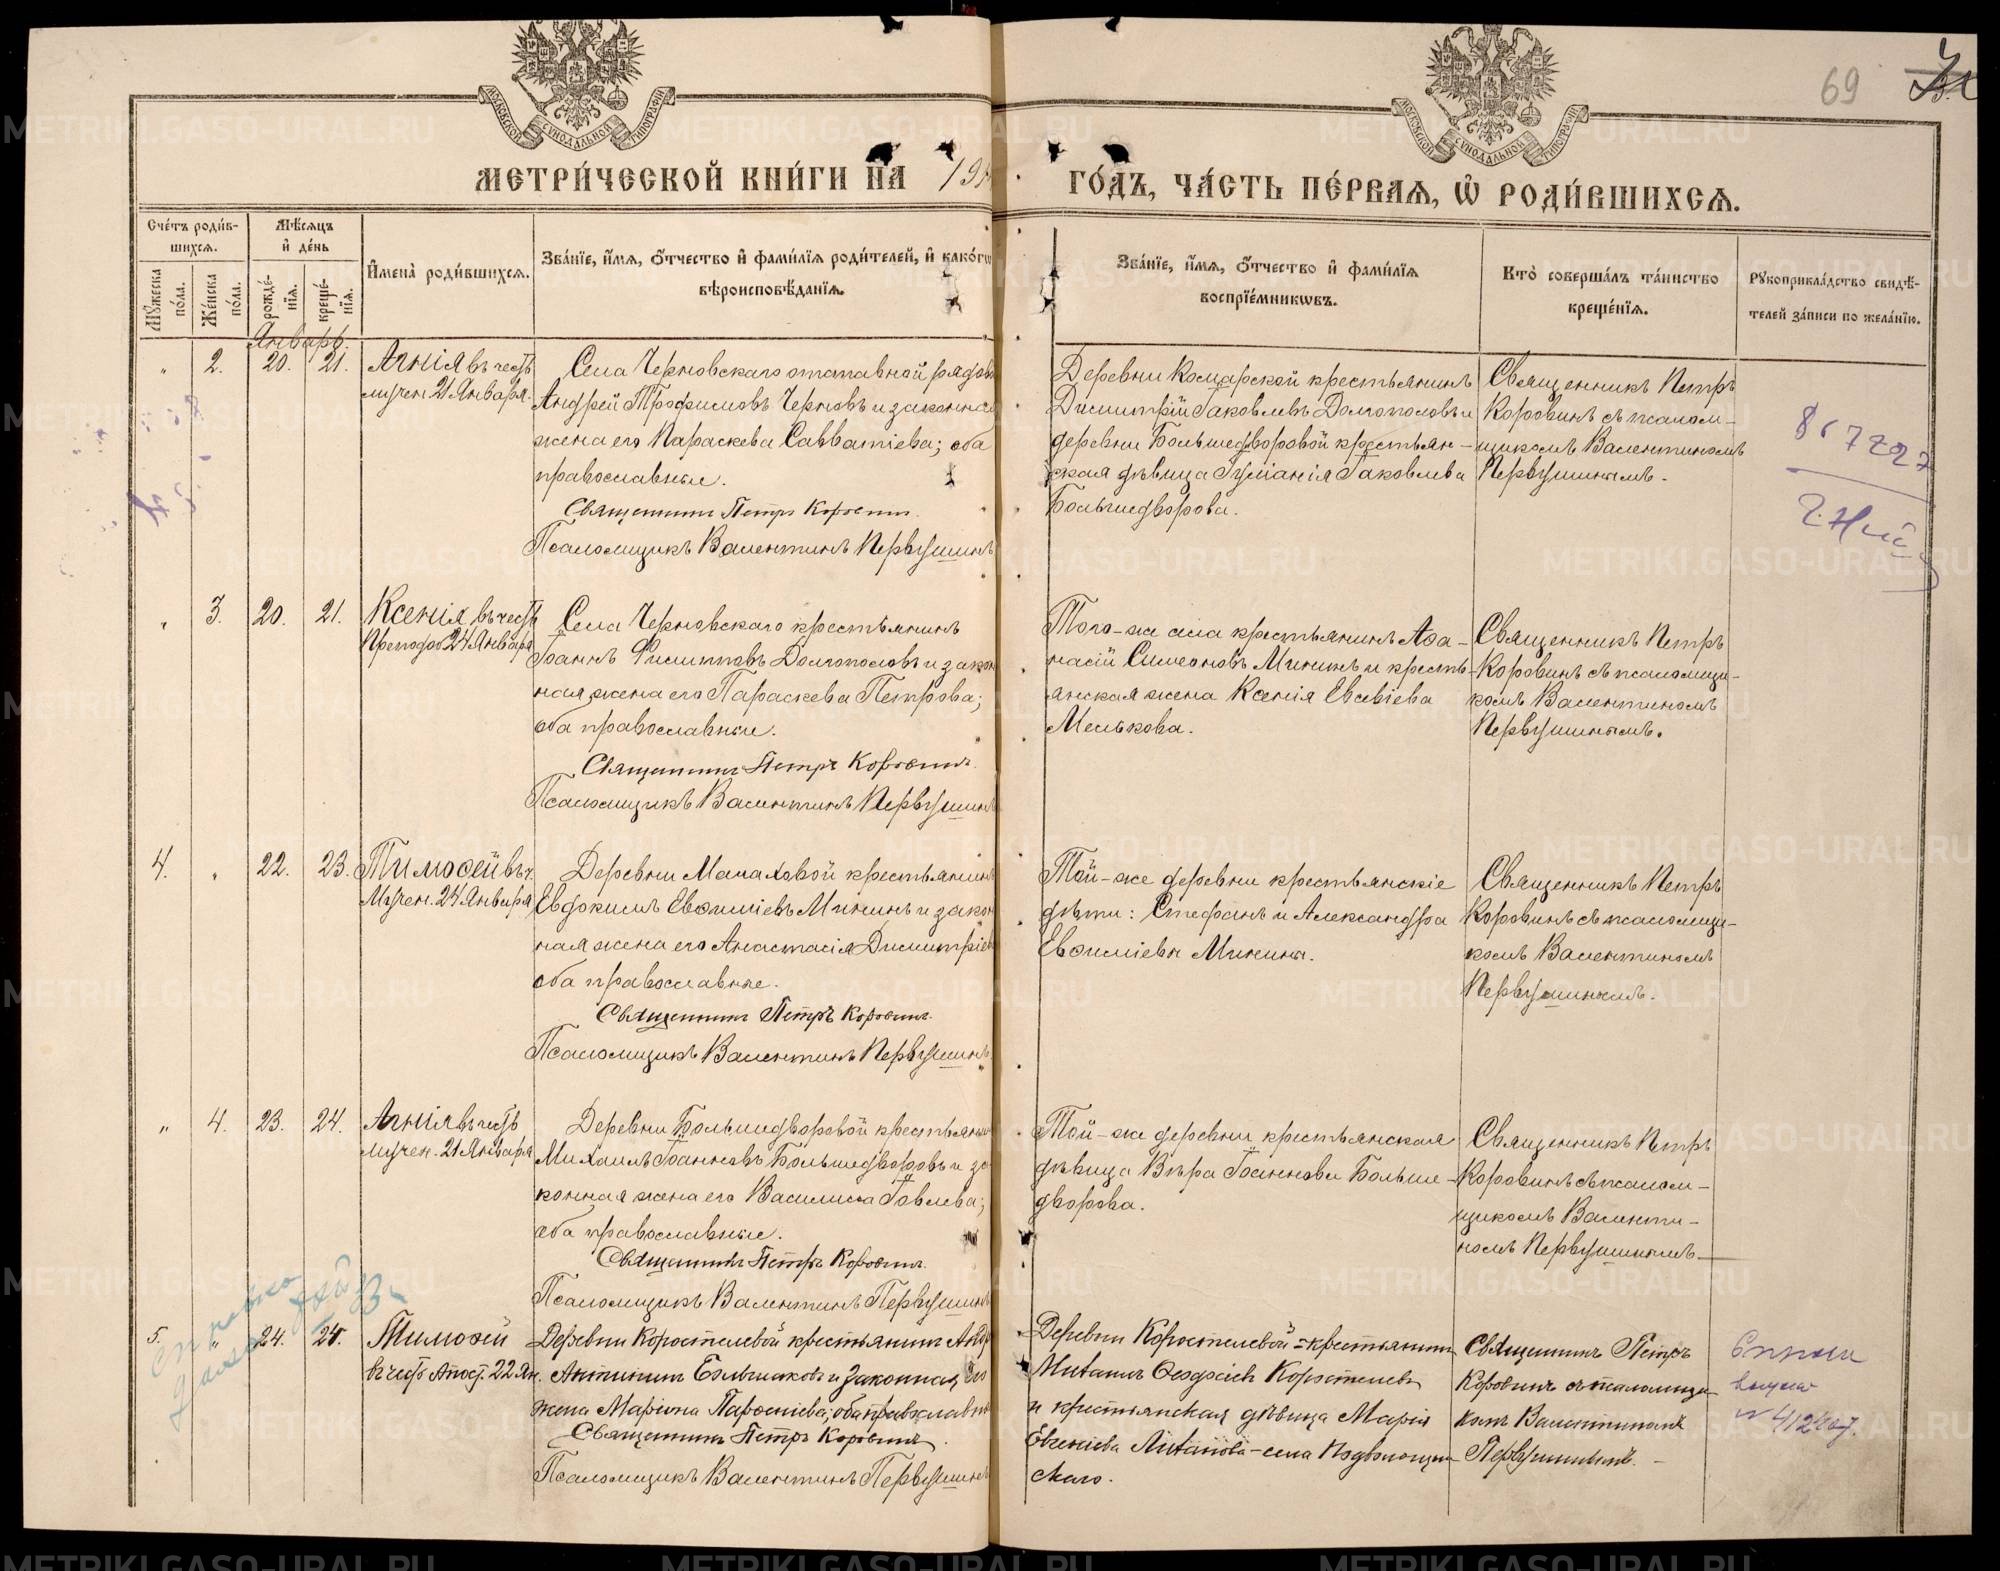 69
МОСКОВСКОЙ СУНОДАЛЬНОЙ ТИПОГРАФІИ
МОСКОВСКОЙ СУНОДАЛЬНОЙ ТИПОГРАФІИ
МЕТРИ́ЧЕСКОЙ КНИ́ГИ НА 19
ГО́ДЪ, ЧА́СТЬ ПЕ́РВАѦ, Ѡ РОДИ́ВШИХСѦ.
Сче́тъ роди́в-
шихсѧ.
Мꙋ́жеска по́ла.
Же́нска по́ла.
Мѣ́сѧцъ
и де́нь
рожде́-
нїѧ.
креще́-
нїѧ.
Имена̀ роди́вшихсѧ.
Зва́нїе, и́мѧ, о́тчество и фами́лїѧ роди́телей, и како́гѡ
вѣроисповѣ́данїѧ.
Зва́нїе, и́мѧ, о́тчество и фами́лїѧ
воспрїе́мникѡвъ.
Кто̀ соверша́лъ та́инство
креще́нїѧ.
Рꙋкоприкла́дство свидѣ́-
телей за́писи по жела́нїю.
Январь.
" 2. 20. 21.
Агнія въ честь
мучен. 21 Января.
Села Черновскаго отставной рядов
Андрей Трофимовъ Черновъ и законная
жена его Параскева Савватіева; оба
православные.
Священникъ Петръ Коровинъ.
Псаломщикъ Валентинъ Первушинъ
Деревни Комарской крестьянинъ
Димитрій Іаковлевъ Долгополовъ и
деревни Большедворовой крестьян-
ская дѣвица Іуліанія Іаковлева
Большедворова.
Священникъ Петръ
Коровинъ съ псалом-
щикомъ Валентиномъ
Первушинымъ.
" 3. 20. 21.
Ксенія въ честь
Преподоб. 24 Января
Села Черновскаго крестьянинъ
Іоаннъ Филипповъ Долгополовъ и закон
ная жена его Параскева Петрова;
оба православные.
Священникъ Петръ Коровинъ.
Псаломщикъ Валентинъ Первушинъ
Того-же села крестьянинъ Аѳа-
насій Симеоновъ Мининъ и кресть-
янская жена Ксенія Евсевіева
Мелькова.
Священникъ Петръ
Коровинъ съ псаломщи-
комъ Валентиномъ
Первушинымъ.
4. " 22. 23.
Тимоѳей въ ч.
Мучен. 24 Января
Деревни Малаховой крестьянинъ
Евдокимъ Евѳиміевъ Мининъ и закон
ная жена его Анастасія Димитріев
оба православные.
Священникъ Петръ Коровинъ.
Псаломщикъ Валентинъ Первушинъ.
Той-же деревни крестьянскіе
дѣти: Стефанъ и Александра
Евѳиміевы Минины.
Священникъ Петръ
Коровинъ съ псаломщи-
комъ Валентиномъ
Первушинымъ.
" 4. 23. 24.
Агнія въ честь
мучен. 21 Января
Деревни Большедворовой крестьянин
Михаилъ Іоанновъ Большедворовъ и за
конная жена его Василиса Іовлева;
оба православные.
Священникъ Петръ Коровинъ.
Псаломщикъ Валентинъ Первушинъ
Той-же деревни крестьянская
дѣвица Вѣра Іоаннова Больше-
дворова.
Священникъ Петръ
Коровинъ съ псалом-
щикомъ Валенти-
номъ Первушинымъ
5. " 24. 24.
Тимоѳей
въ честь Апост. 22 Ян.
Деревни Коростелевой крестьянинъ
Антипинъ Большаковъ и законная его
жена Марина Парѳеніева; оба православн
Священникъ Петръ Коровинъ.
Псаломщикъ Валентинъ Первушинъ
Деревни Коростелевой крестьянинъ
Михаилъ Ѳедосіевъ Коростелевъ
и крестьянская дѣвица Марія
Евгеніева села
скаго.
Священникъ Петръ
Коровинъ съ псаломщи-
комъ Валентиномъ
Первушинымъ.
METRIKI.GASO-URAL.RU